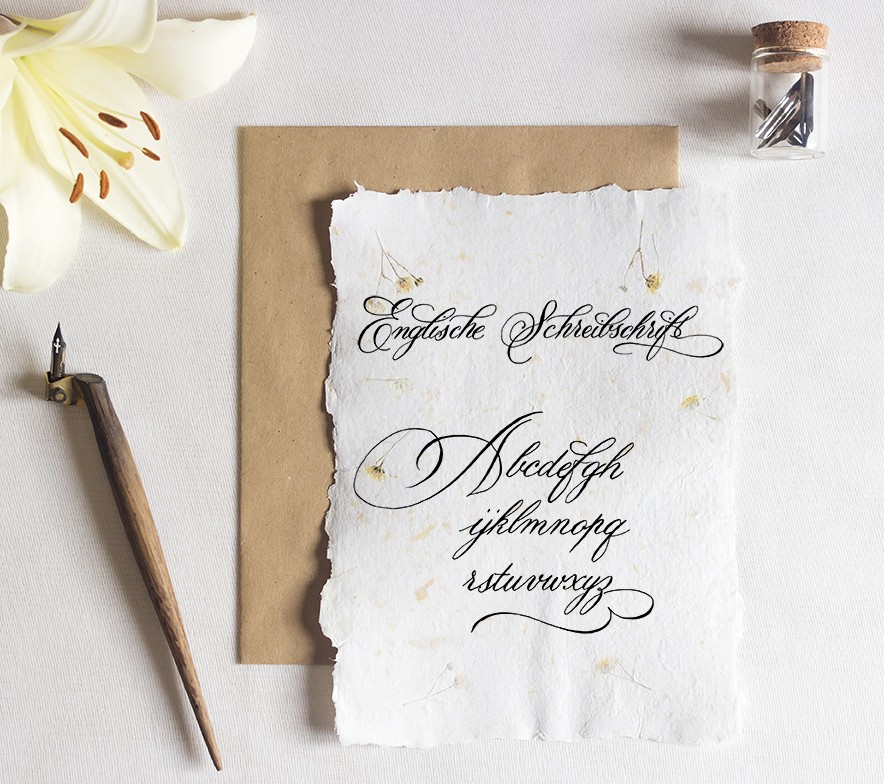 Englische Schreibschrift
Abcdefgh
ijklmnopq
rstuvwxyz